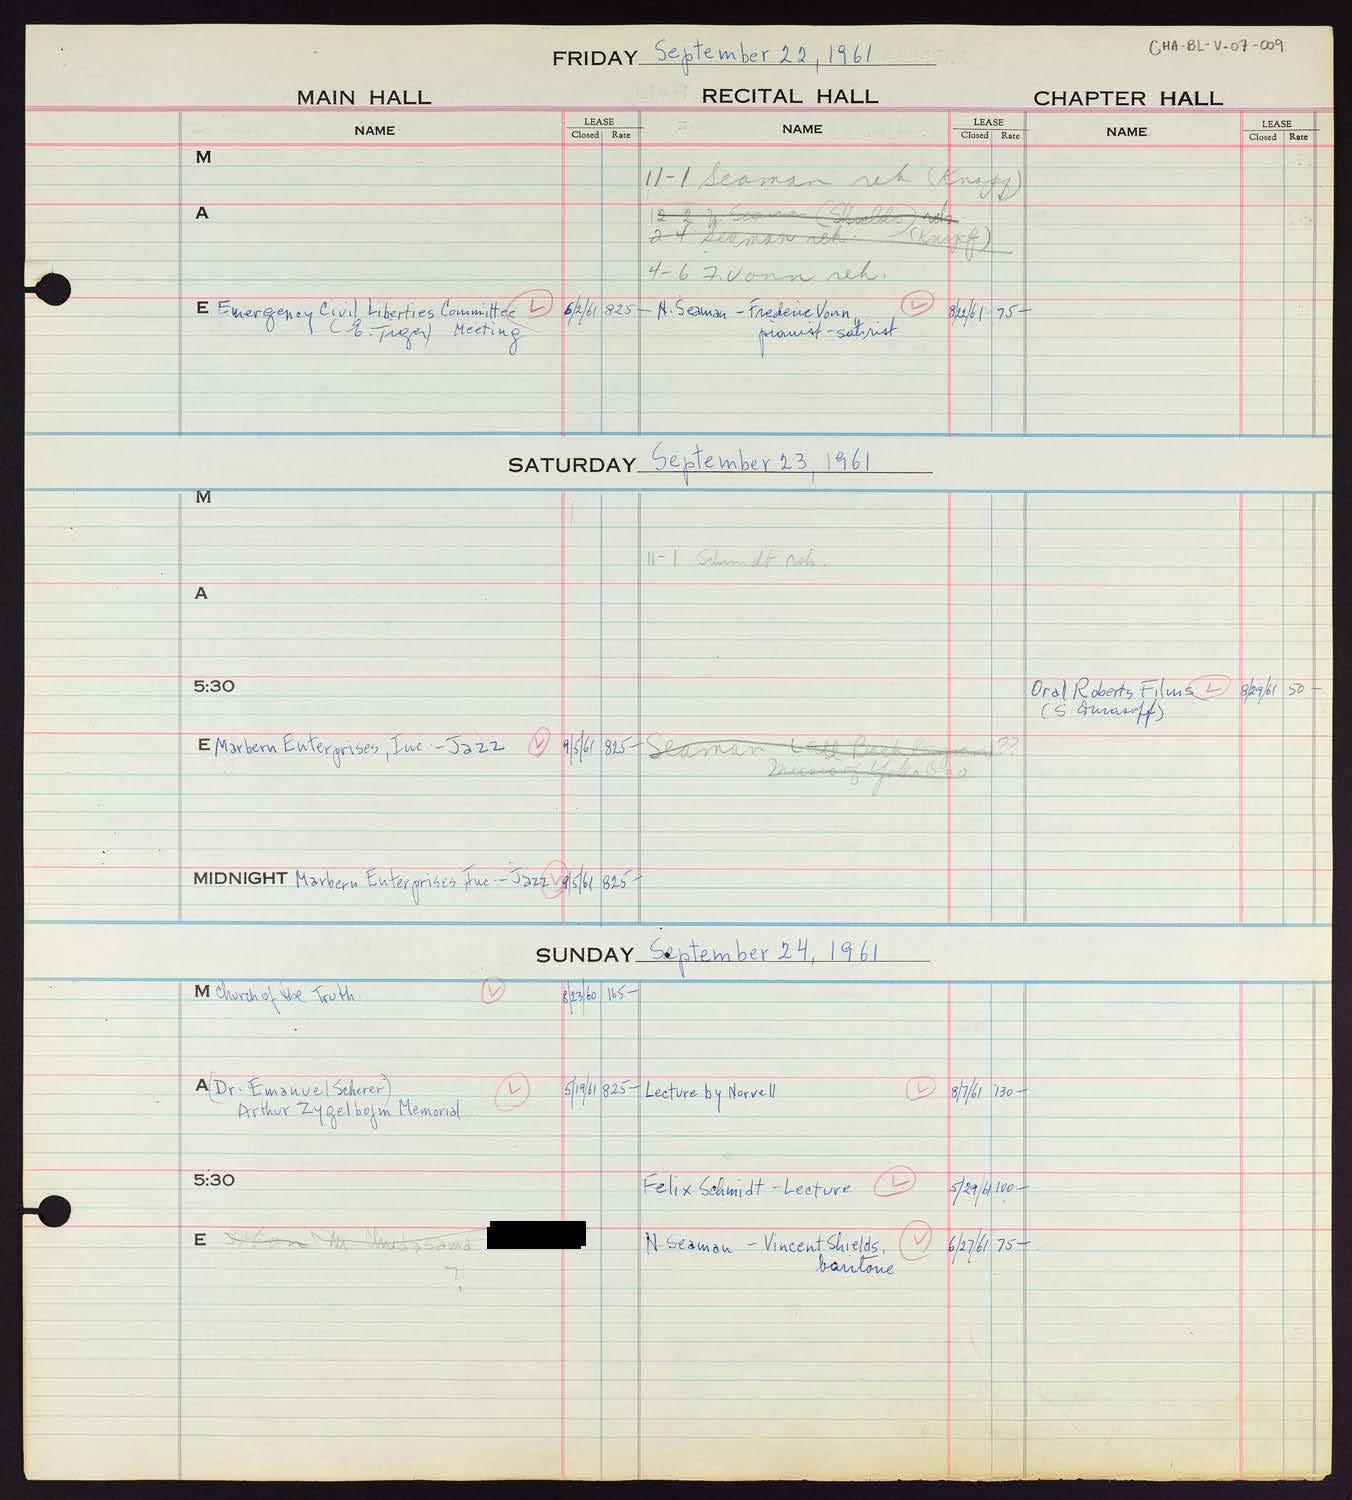 CHA-BL-V-07-009
FRIDAY September 22, 1961
MAIN HALL RECITAL HALL CHAPTER HALL
NAME LEASE Closed Rate NAME LEASE Closed Rate NAME LEASE Closed Rate
M
11-1 Seaman reh (Knopf)
A
12-2 (Shields) reh.
2-4 Seaman reh. (Knopf)
4-6 F. Vonn reh.
E Emergency Civil Liberties Committee L 6/2/61 825- N. Seaman - Frederic Vonn, L 8/22/61 75-
Meeting pianist-satirist
SATURDAY September 23, 1961
M
11-1 Schmidt reh.
A
5:30 Oral Roberts Films L 8/29/61 50-
E Marbern Enterprises, Inc.-Jazz L 9/5/61 825- Seaman ??
Music of Yoko Ono
MIDNIGHT Marbern Enterprises Inc.-Jazz L 9/5/61 825-
SUNDAY September 24, 1961
M Church of the Truth L 8/23/60 165-
A (Dr. Emanuel Scherer) L 5/19/61 825- Lecture by Norvell L 8/7/61 130-
Arthur Zygelbojm Memorial
5:30 Felix Schmidt-Lecture L 5/29/61 100-
E N. Seaman - Vincent Shields, L 6/27/61 75-
? baritone